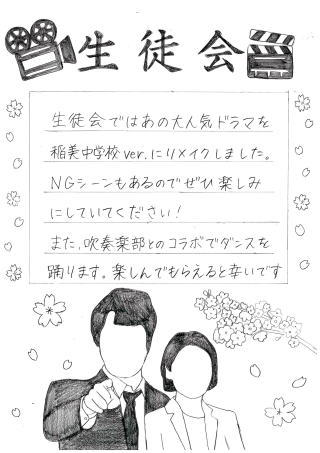 生徒会
生徒会ではあの大人気ドラマを
稲美中学校ver.にリメイクしました。
NGシーンもあるのでぜひ楽しみ
にしていてください！
また、吹奏楽部とのコラボでダンスを
踊ります。楽しんでもらえると幸いです